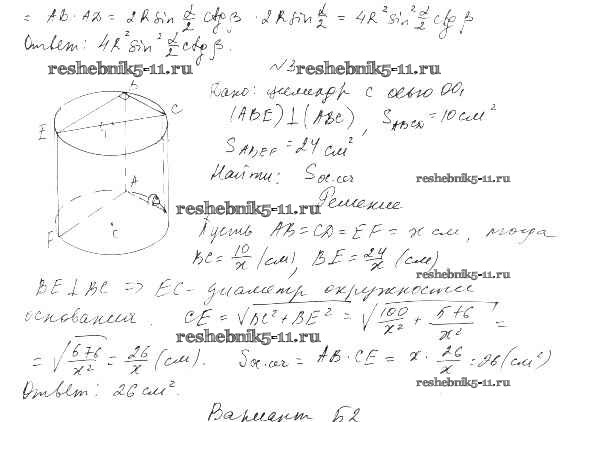 = AB · AD = 2R sin α/2 ctg β · 2R sin α/2 = 4R² sin² α/2 ctg β
Ответ: 4R² sin² α/2 ctg β.
№3
reshebnik5-11.ru
reshebnik5-11.ru
Дано: цилиндр с осью OO₁
(ABE) ⊥ (ABC), S_ABCD = 10 см²
S_ABEF = 24 см²
Найти: S ос.сеч
reshebnik5-11.ru
Решение
B
C
E
A
F
C
reshebnik5-11.ru
Пусть AB = CD = EF = x см, тогда
BC = 10/x (см), BE = 24/x (см)
reshebnik5-11.ru
BE ⊥ BC => EC - диаметр окружности
основания. CE = √(BC² + BE²) = √(100/x² + 576/x²) =
reshebnik5-11.ru
= √(676/x²) = 26/x (см). S ос.сеч = AB · CE = x · 26/x = 26 (см²)
Ответ: 26 см².
reshebnik5-11.ru
Вариант Б2